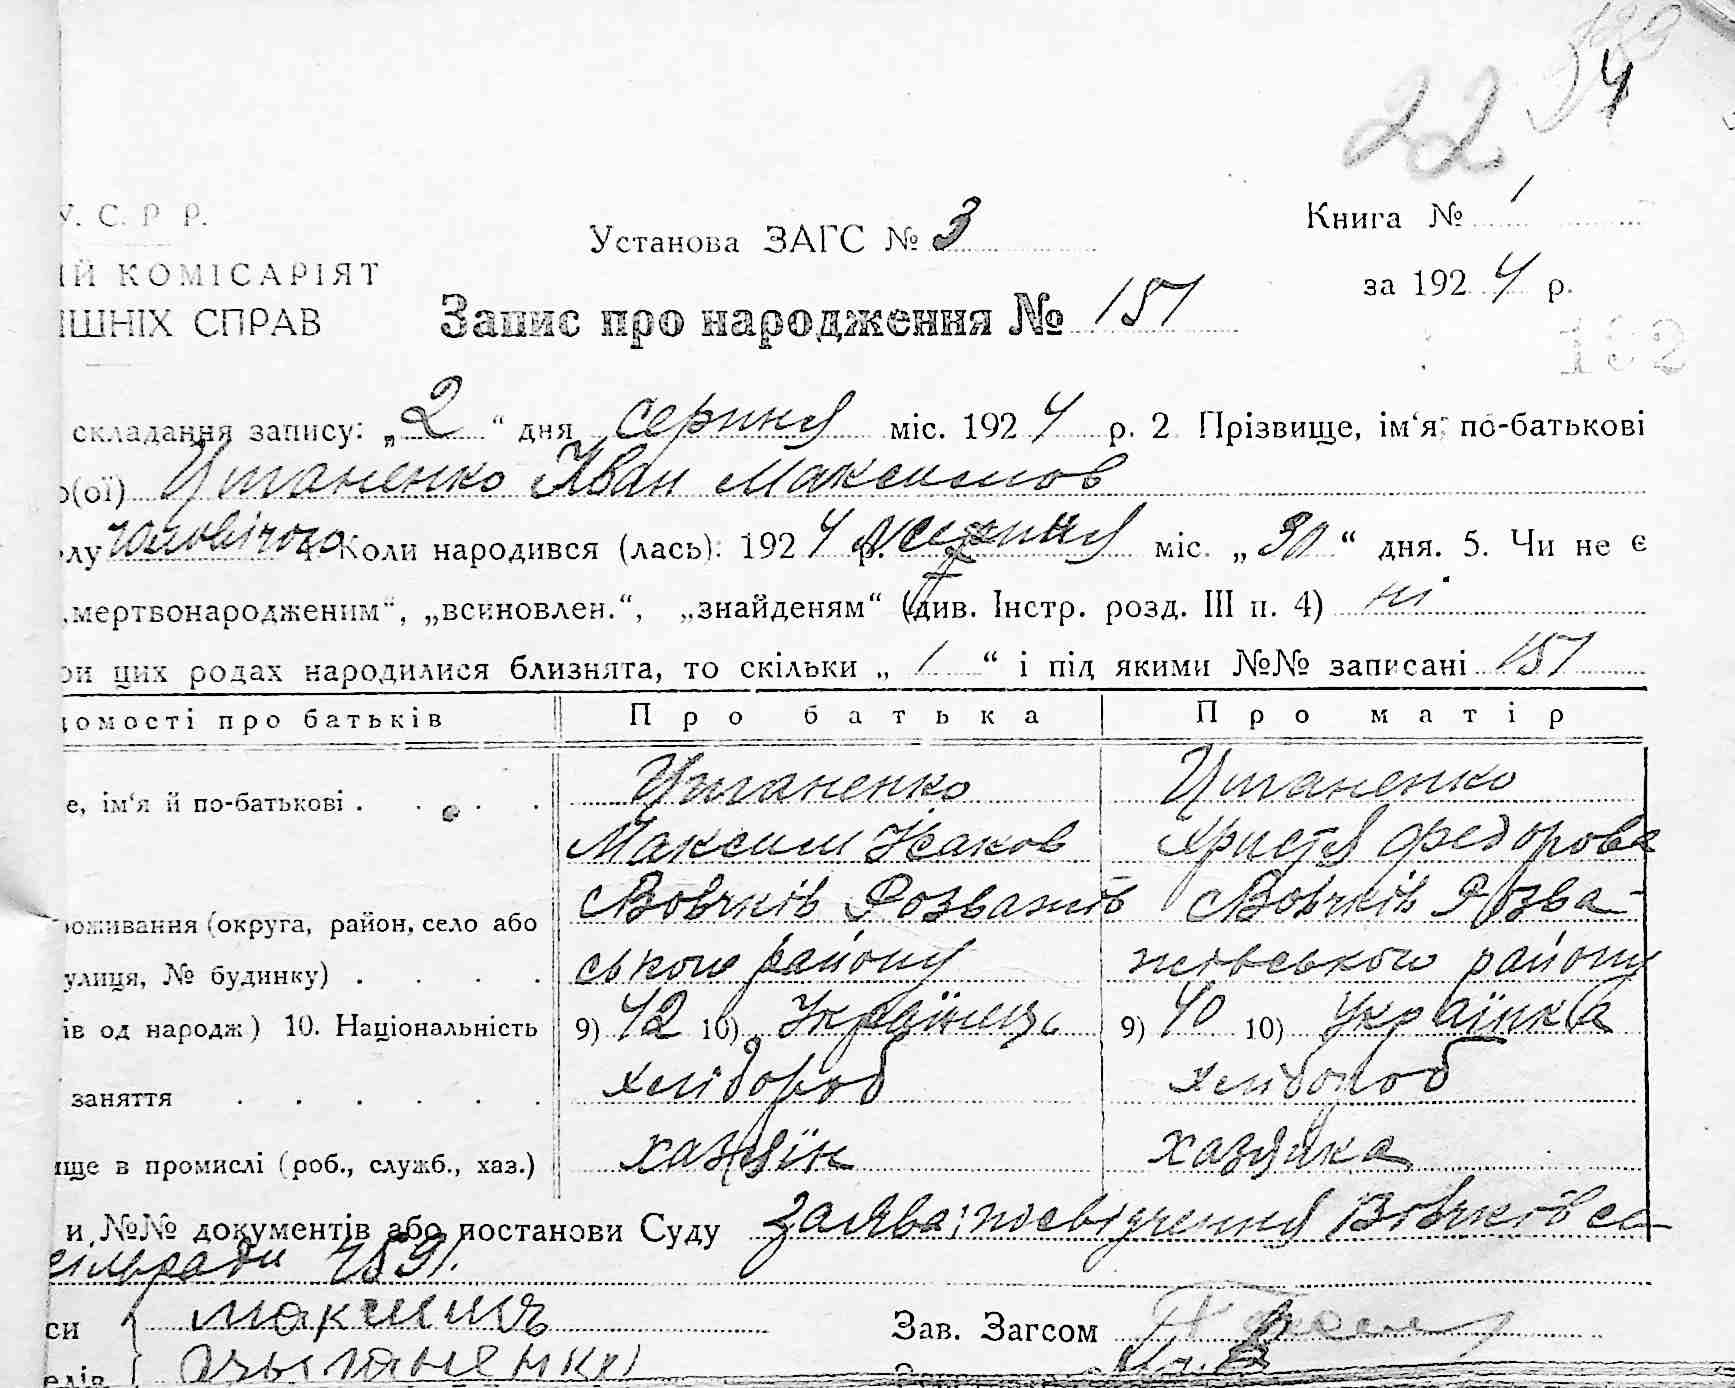 22 4
У. С. Р Р.
Установа ЗАГС № 3
Книга № 1
ИЙ КОМІСАРІЯТ
за 192 4 р.
ІШНІХ СПРАВ
Запис про народження № 151
складання запису: „ 2 “ дня серпня міс. 192 4 р. 2 Прізвище, ім‘я, по-батькові
о(ої) Циганенко Іван Максимов
лу чоловічого 4 Коли народився (лась): 192 4 р. серпня міс. „ “ дня. 5. Чи не є
„мертвонародженим“, „всиновлен.“, „знайденям“ (див. Інстр. розд. III п. 4) ні
ри цих родах народилися близнята, то скільки „ 1 “ і під якими №№ записані 151
домості про батьків Про батька Про матір
е, ім‘я й по-батькові . . . . Циганенко Циганенко
Максим Ісаков Христя Федорова
с Вовчків Розважів с Вовчків Розва-
роживання (округа, район, село або
улиця, № будинку) . . . . ського району жівського району
ів од народж) 10. Національність 9) 42 10) Українець 9) 40 10) Українка
заняття . . . . . . хлібороб хлібороб
ище в промислі (роб., служб., хаз.) хазяїн хазяйка
и №№ документів або постанови Суду заява; посвідчення Вовчківсь
сільради 459
си Максимъ Зав. Загсом
Цыганенко